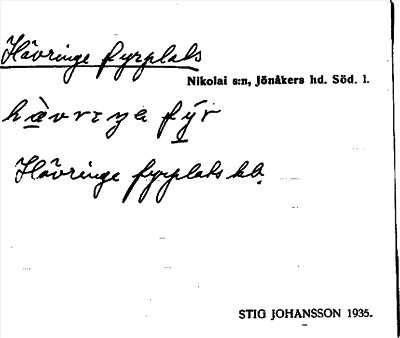 Hävringe fyrplats
Nikolai s:n, Jönåkers hd. Söd. l.
Hävringe fyrplats kb.
STIG JOHANSSON 1935.